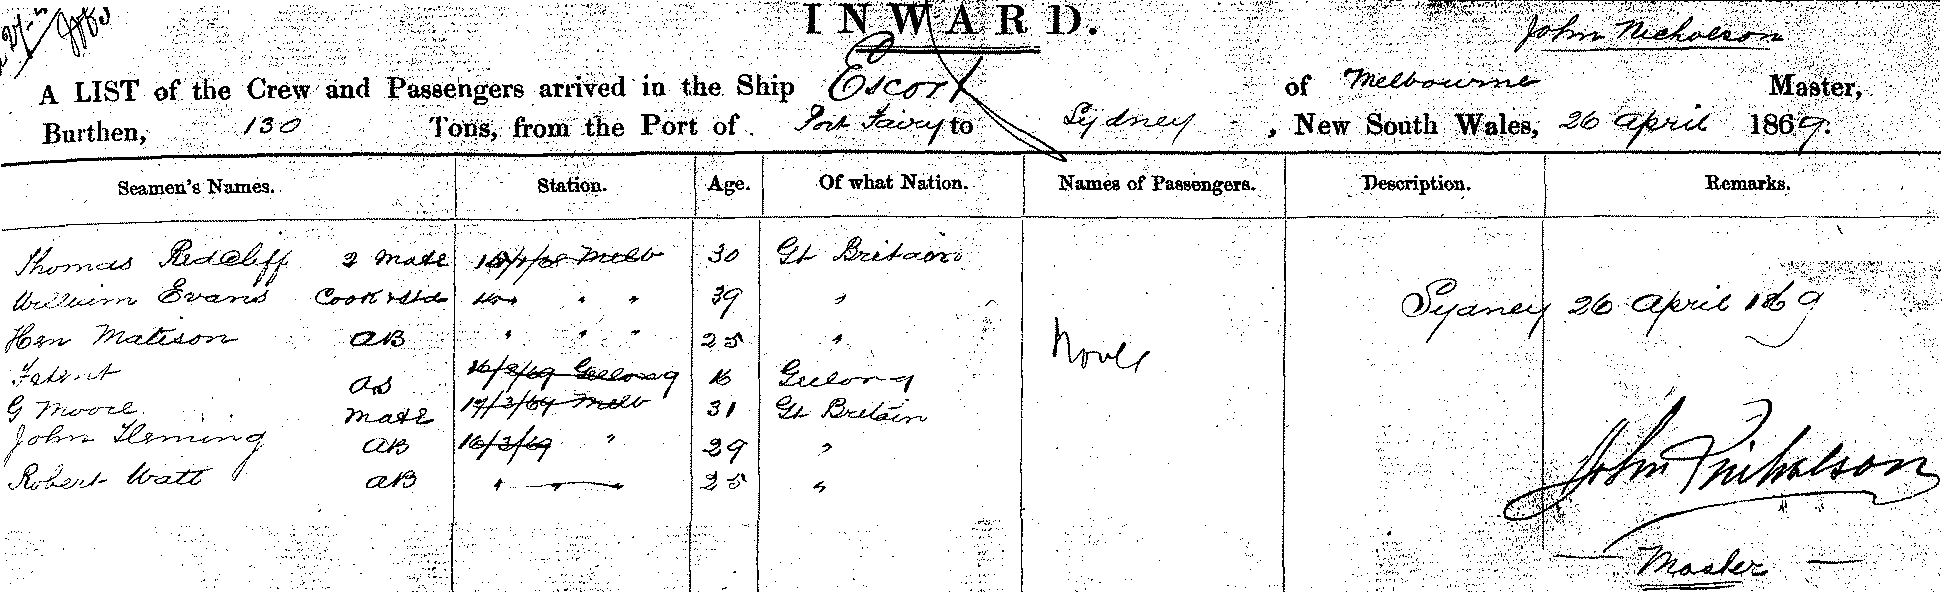 INWARD.
John Nicholson
A LIST of the Crew and Passengers arrived in the Ship Escort of Melbourne Master,
Burthen, 130 Tons, from the Port of Port Fairy to Sydney, New South Wales, 26 April 1869.
Seamen's Names. Station. Age. Of what Nation. Names of Passengers. Description. Remarks.
Thomas Redcliff 2 Mate Melb 30 Gt Britain
William Evans Cook & Std " " 39 "
Sydney 26 April 1869
Hen Matison AB " " " 25 "
None
AS 16/3/69 Geelong 16 Geelong
G Moore Mate 17/3/69 Melb 31 Gt Britain
John Fleming AB 16/3/69 " 29 "
Robert Watt AB " " 25 "
John Nicholson
Master